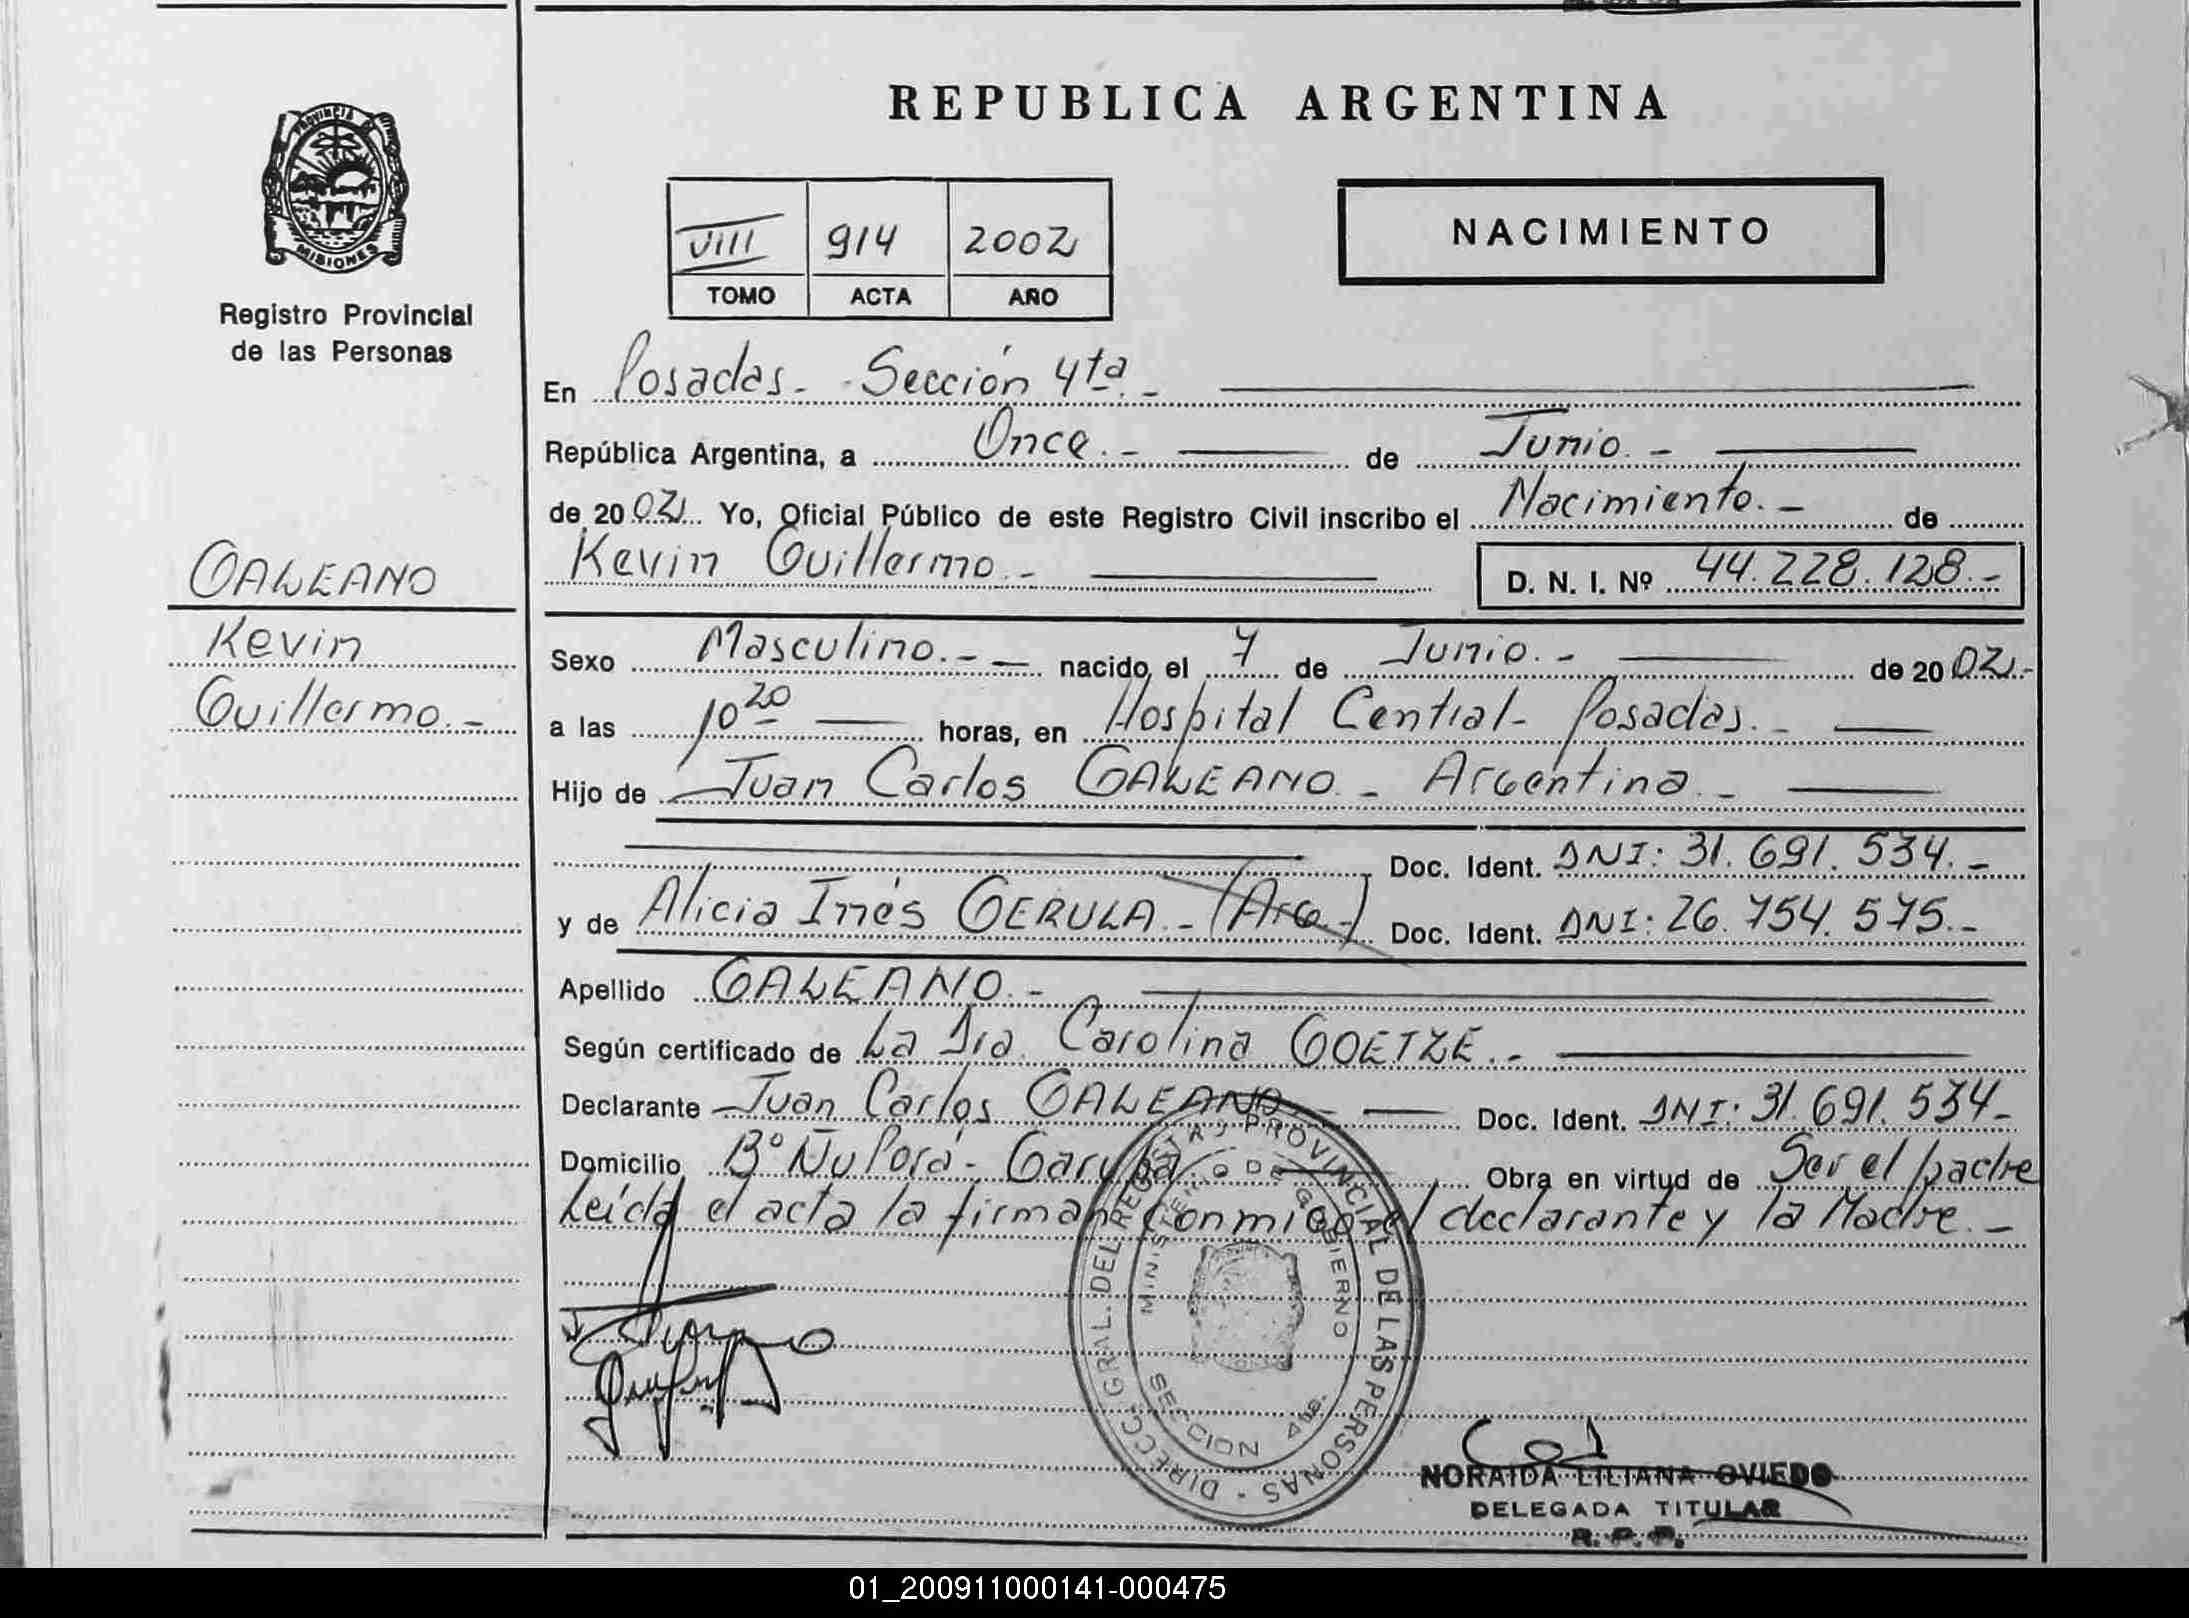 REPUBLICA ARGENTINA
PROVINCIA DE
MISIONES
Registro Provincial
de las Personas
VIII 914 2002
TOMO ACTA AÑO
NACIMIENTO
En Posadas.- Sección 4ta.-
República Argentina, a Once.- de Junio.-
de 2002 Yo, Oficial Público de este Registro Civil inscribo el Nacimiento.- de
Kevin Guillermo.- D. N. I. Nº 44.228.128.-
GALEANO
Kevin
Guillermo.-
Sexo Masculino.- nacido el 7 de Junio.- de 2002.-
a las 10 20 horas, en Hospital Central- Posadas.-
Hijo de Juan Carlos GALEANO.- Argentina.-
Doc. Ident. DNI: 31.691.534.-
y de Alicia Inés GERULA.- (Arg.-) Doc. Ident. DNI: 26.754.575.-
Apellido GALEANO.-
Según certificado de La Dra. Carolina GOETZE.-
Declarante Juan Carlos GALEANO.- Doc. Ident. DNI: 31.691.534-
Domicilio Bº Ñu Porá- Garupá Obra en virtud de Ser el padre
Leída el acta la firman conmigo el declarante y la Madre.-
DIRECC. GRAL. DEL REGISTRO PROVINCIAL DE LAS PERSONAS
MINISTERIO DE GOBIERNO
SECCION 4ta.
NORAIDA LILIANA OVIEDO
DELEGADA TITULAR
R. P. P.
01_200911000141-000475